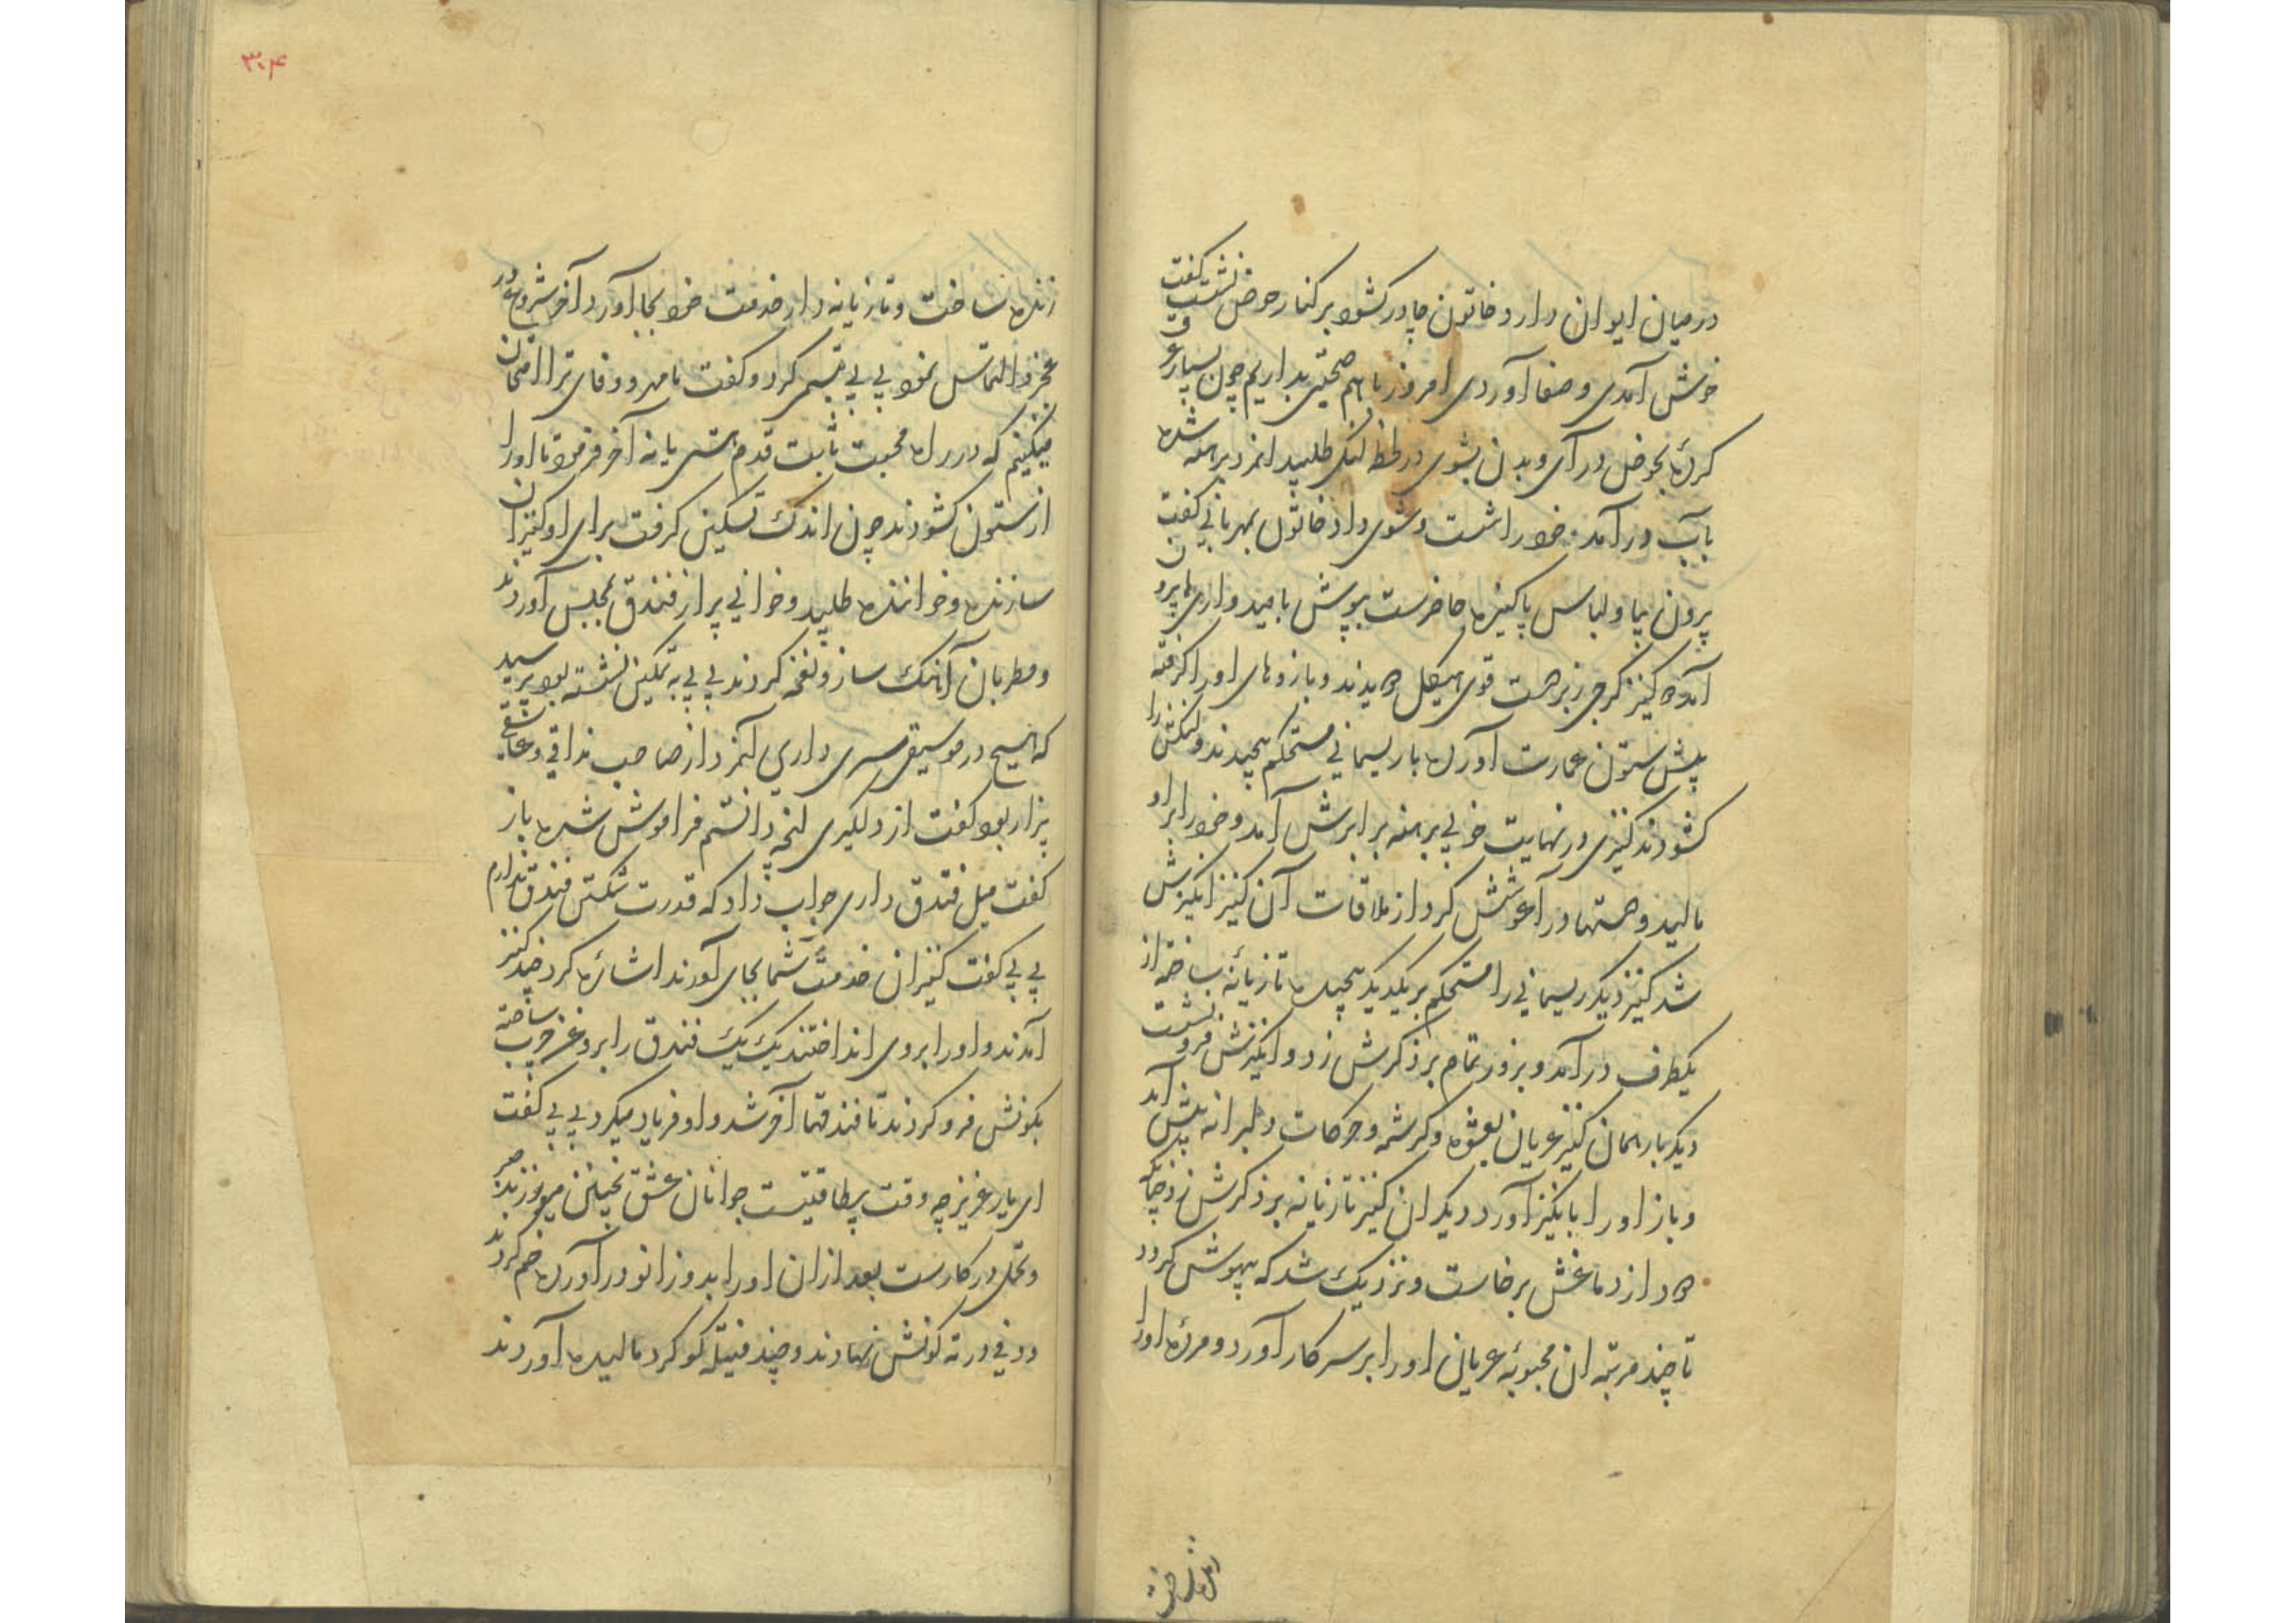 درمیان ایوان دارد خاتون چادر کشود بر کنار حوض نشست گفت
خوش آمدی و صفا آوردی امروز باهم صحبتی بداریم چون بسیار عرق
کرده بحوض درآی و بدن بشوی در لحظه لنگی طلبید انمرد برهنه شده
بآب درآمد و خود را شست و شوی داد خاتون بمهربانی گفت
بیرون بیا و لباس پاکیزه حاضرست بپوش بامیدواری تا بیرون
آمد ده کنیز کرجی زبردست قوی هیکل دویدند و بازوهای او را گرفته
پیش ستون عمارت آورده با ریسمانی مستحکم پیچیدند و لنگش را
کشودند کنیزی در نهایت خوبی برهنه برابرش آمد و خود را براو
مالید و دستها در آغوشش کرد از ملاقات آن کنیز انگیزش
شد کنیز دیگر ریسمانی را مستحکم بر یکدیگر پیچیده تازیانه ساخته از
یکطرف درآمد و بزور تمام بر ذکرش زد و انگیزش فرو نشست
دیگر بار همان کنیز عریان بعشوه و کرشمه و حرکات دلبرانه پیش آمد
و باز او را بانگیز آورد دیگر ان کنیز تازیانه بر ذکرش زد چنانکه
دود از دماغش برخاست و نزدیک شد که بیهوش گردد
تا چند مرتبه ان محبوبهٔ عریان او را بر سر کار آورد و مردهٔ او را
زنده ساخت
زنده ساخت و تازیانه دار خدمت خود بجا آورد آخر شروع در
عجز و التماس نمود بی بی تبسم کرد و گفت ما مهر و وفای ترا امتحان
میکنیم که در راه محبت ثابت قدم هستی یا نه آخر فرمود تا او را
از ستون کشودند چون اندک تسکین گرفت برای او کنیزان
سازنده و خواننده طلبید و خوانی پر از فندق بمجلس آوردند
و مطربان آهنگ ساز و نغمه کردند بی بی به تمکین نشسته بود پرسید
که هیچ در موسیقی سری داری آنمرد از صاحب مذاقی و عاشقی
بیزار بود گفت از دلگیری آنچه دانستم فراموش شده باز
گفت میل فندق داری جواب داد که قدرت شکستن فندق ندارم
بی بی گفت کنیزان خدمت شما بجای آورند اشاره کرد چند کنیز
آمدند و او را بروی انداختند یک یک فندق را بروغن چرب ساخته
بکونش فرو کردند تا فندقها آخر شد و او فریاد میکرد بی بی گفت
ای یار عزیز چه وقت بیطاقتیست جوانان عشق چنین میورزند صبر
و تحمل در کارست بعد ازان او را بدو زانو درآورده خم کردند
و در ته کونش نهادند و چند فتیله کوکرد مالیده آوردند
۳۰۴